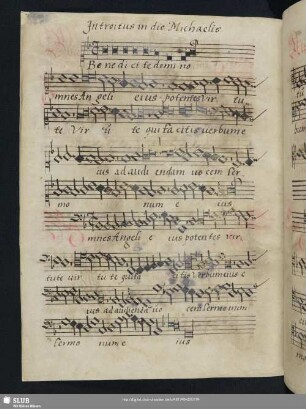 Introitus in die Michaelis
Benedicite domino
mnes Angeli eius potentes vir tu
te vir tu te qui facitis verbum e
ius ad audi endam uo cem ser
mo num e ius
mnes Angeli e ius potentes vir
tute vir tu te qui fa citis verbum eius e
ius ad audienda uo cem sermonum
Sermo num e ius
SLUB